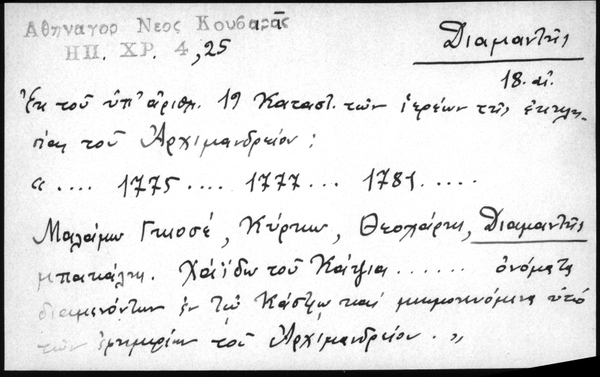 Αθηναγορ Νεος Κουβαρᾶς
ΗΠ. ΧΡ. 4, 25
Διαμαντῆς
18. αἰ.
Ἐκ τοῦ ὑπ' ἀριθ. 19 Καταστ. τῶν ἱερέων τῆς ἐκκλη-
σίας τοῦ Ἀρχιμανδρείου :
".... 1775 .... 1777 ... 1781 .....
Μαλάμω Γκιοσέ, Κύρκω, Θεοχάρη, Διαμαντῆς
μπακάλη. Χάϊδω τοῦ Κάτζια ...... ὀνόματα
διαμενόντων ἐν τῷ Κάστρῳ καί μνημονευόμενα ὑπό
τῶν ἐφημερίων τοῦ Ἀρχιμανδρείου. "